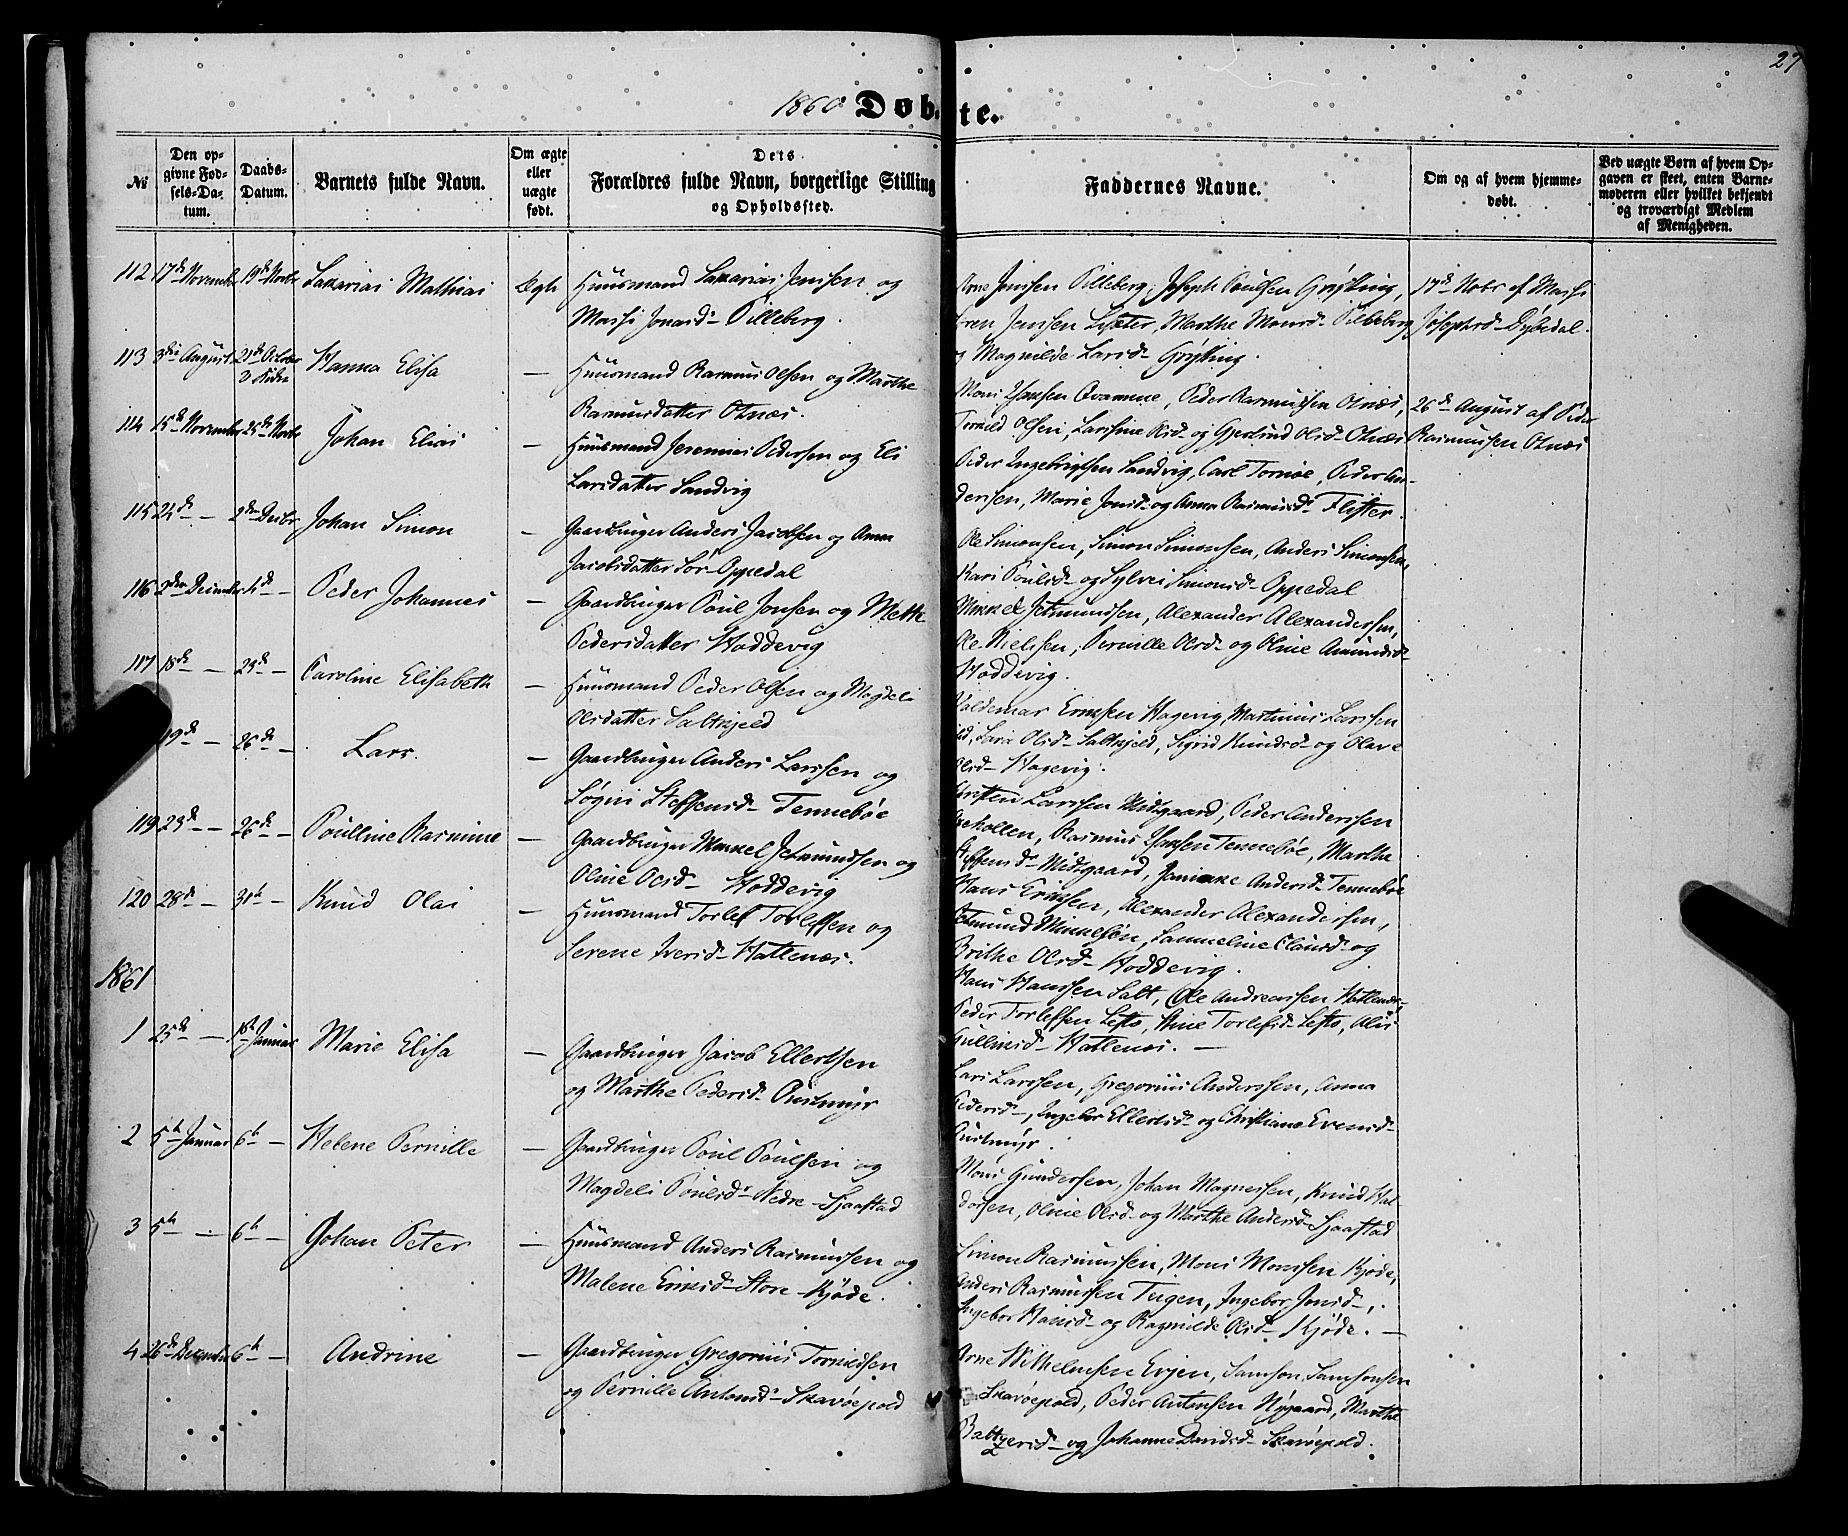 27
1860 Døbte.
№
Den opgivne Fødsels-Datum.
Daabs-Datum.
Barnets fulde Navn.
Om ægte eller uægte født.
Dets Forældres fulde Navn, borgerlige Stilling og Opholdssted.
Faddernes Navne.
Om og af hvem hjemmedøbt.
Ved uægte Børn af hvem Opgaven er skeet, enten Barnemoderen eller hvilket bekjendt og troværdigt Medlem af Menigheden.
112 17de November 19de Novbr Zakarias Mathias Ægte Huusmand Zakarias Jenssen og
Massi Jonasd- Pilleberg.
Arne Jenssen Pilleberg, Joseph Poulsen Grytting,
Jenssen Marthe Monsd- Pilleberg
og Magnilde Larsd- Grytting.
17de Novbr af Massi
Josephsd- Dybedal.
113 3die August 21de October Hanna Elisa — Huusmand Rasmus Olsen og Marthe
Rasmusdatter Otnæs.
Mons Hanssen Qvamme, Peder Rasmussen Otnæs,
Tornild Olsen, Larsine Olsd- og Gjertrud Olsd- Otnæs
26de August af Peder
Rasmussen Otnæs
114 15de November 25de Novbr Johan Elias — Huusmand Jeremias Pedersen og Eli
Larsdatter Sandvig
Peder Ingebrigtsen Sandvig, Carl Tornøe, Peder An-
dersen, Marie Jonsd- og Anna Rasmusd- Flister.
115 24de — 2den Decbr Johan Simon — Gaardbruger Anders Jacobsen og Anna
Jacobsdatter Sör-Oppedal
Ole Simonsen, Simon Simonsen, Anders Simonsen,
Kari Poulsd- og Sylvei Simonsd- Oppedal
116 2den December — Peder Johannes — Gaardbruger Poul Jonsen og Mette
Pedersdatter Hoddevig
Mikkel Jetmundsen, Alexander Alexandersen,
Ole Nielsen, Pernille Olsd- og Oline Amundsd-
Hoddevig.
117 18de — 23de — Caroline Elisabeth — Huusmand Peder Olsen og Magdeli
Olsdatter Saltkjeld
Valdemar Eriksen Hagevig, Martinus Larssen
Lava Olsd- Saltkjeld, Sigrid Knudsd- og Olave
Olsd- Hagevig.
19de — 26de — Lars. — Gaardbruger Anders Larssen og
Søgni Steffensd- Tennebøe
Christen Larssen Midtgaard, Peder Anderssen
Rasmus Hanssen Tennebøe, Marthe
Steffensd- Midtgaard, Janikke Andersd- Tennebøe
119 23d — 26de — Poulline Rasmine — Gaardbruger Mikkel Jetmundsen og
Oline Olsd- Hoddevig
Hans Eriksen, Alexander Alexandersen,
Jetmund Mikkelsön, Lammeline Clausd- og
Brithe Olsd- Hoddevig.
120 28de — 31te — Knud Olai — Huusmand Torlef Torlefsen og
Serene Iversd- Hatlenæs.
Hans Hanssen Salt, Ole Andreassen Hatlenæs
Peder Torlefsen Lefto, Stine Torlefsd- Lefto,
Gullaksd- Hatlenæs. —
1861
1 25de — 1ste Januar Marie Elisa — Gaardbruger Jacob Ellertsen
og Marthe Pedersd-
Lars Larssen, Gregorius Anderssen, Anna
Pedersd-, Ingebor Ellertsd- og Christiane Evensd-
2 5te Januar 6te — Helene Pernille — Gaardbruger Poul Poulsen og
Magdeli Poulsd- Nedre-Sjaastad
Mons Gundersen, Johan Magnessen, Knud Hal-
dorsen, Oline Olsd- og Marthe Andersd- Sjaastad
3 5te — 6te — Johan Peter — Huusmand Anders Rasmussen og
Malene Eriksd- Store-Kjøde.
Simon Rasmussen, Mons Monssen Kjøde,
Anders Rasmussen Teigen, Ingebor Jonsd-,
Ingebor Hansd- og Ragnilde Olsd- Kjöde. —
4 26de December 6te — Andrine — Gaardbruger Gregorius Tornidsen
og Pernille Antonsd- Skavøepold
Arne Wilhelmsen Ervjen, Samson Samsonsen
Skavøepold, Peder Antonsen Nygaard, Marthe
Baltzersd- og Johanne Davidsd- Skavøepold.